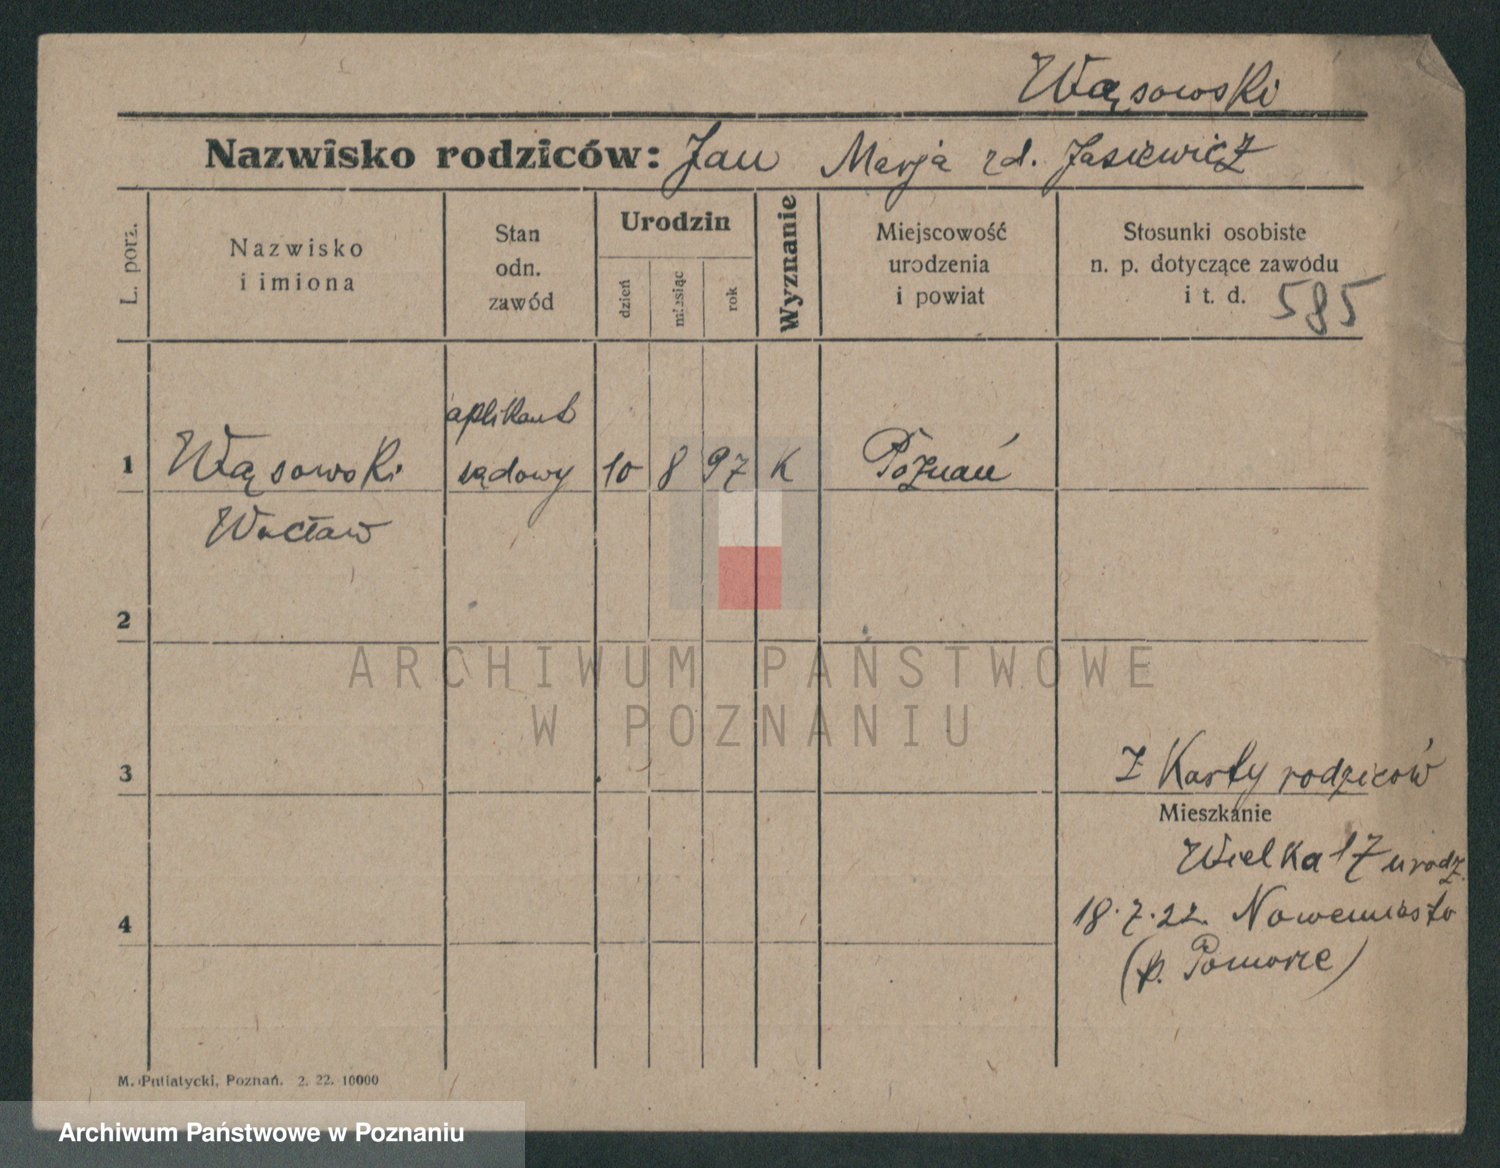 Wąsowski
Nazwisko rodziców: Jan Marja zd. Jasiewicz
L. porz.
Nazwisko
i imiona
Stan
odn.
zawód
Urodzin
dzień
miesiąc
rok
Wyznanie
Miejscowość
urodzenia
i powiat
Stosunki osobiste
n. p. dotyczące zawodu
i t. d. 585
aplikant
1 Wąsowski sądowy 10 8 97 K Poznań
Wacław
2
ARCHIWUM PAŃSTWOWE
W POZNANIU
3
Z Karty rodziców
Mieszkanie
Wielka 17 urodz.
4
18.7.22 Nowemiasto
(p. Pomorze)
M. Putiatycki, Poznań. 2. 22. 10000
Archiwum Państwowe w Poznaniu